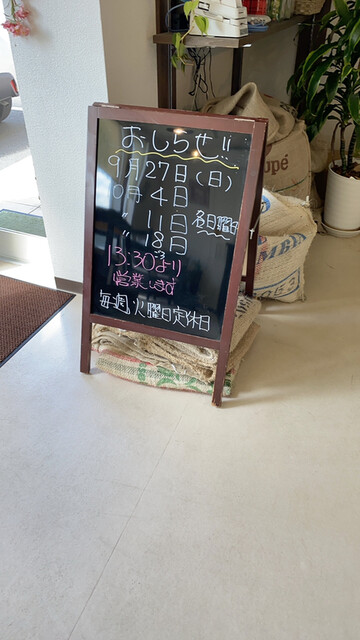 おしらせ!!
9月27日(日)
0月 4日
〃 11日 各日曜日
〃 18日
13:30より
営業します
毎週火曜日定休日
upé